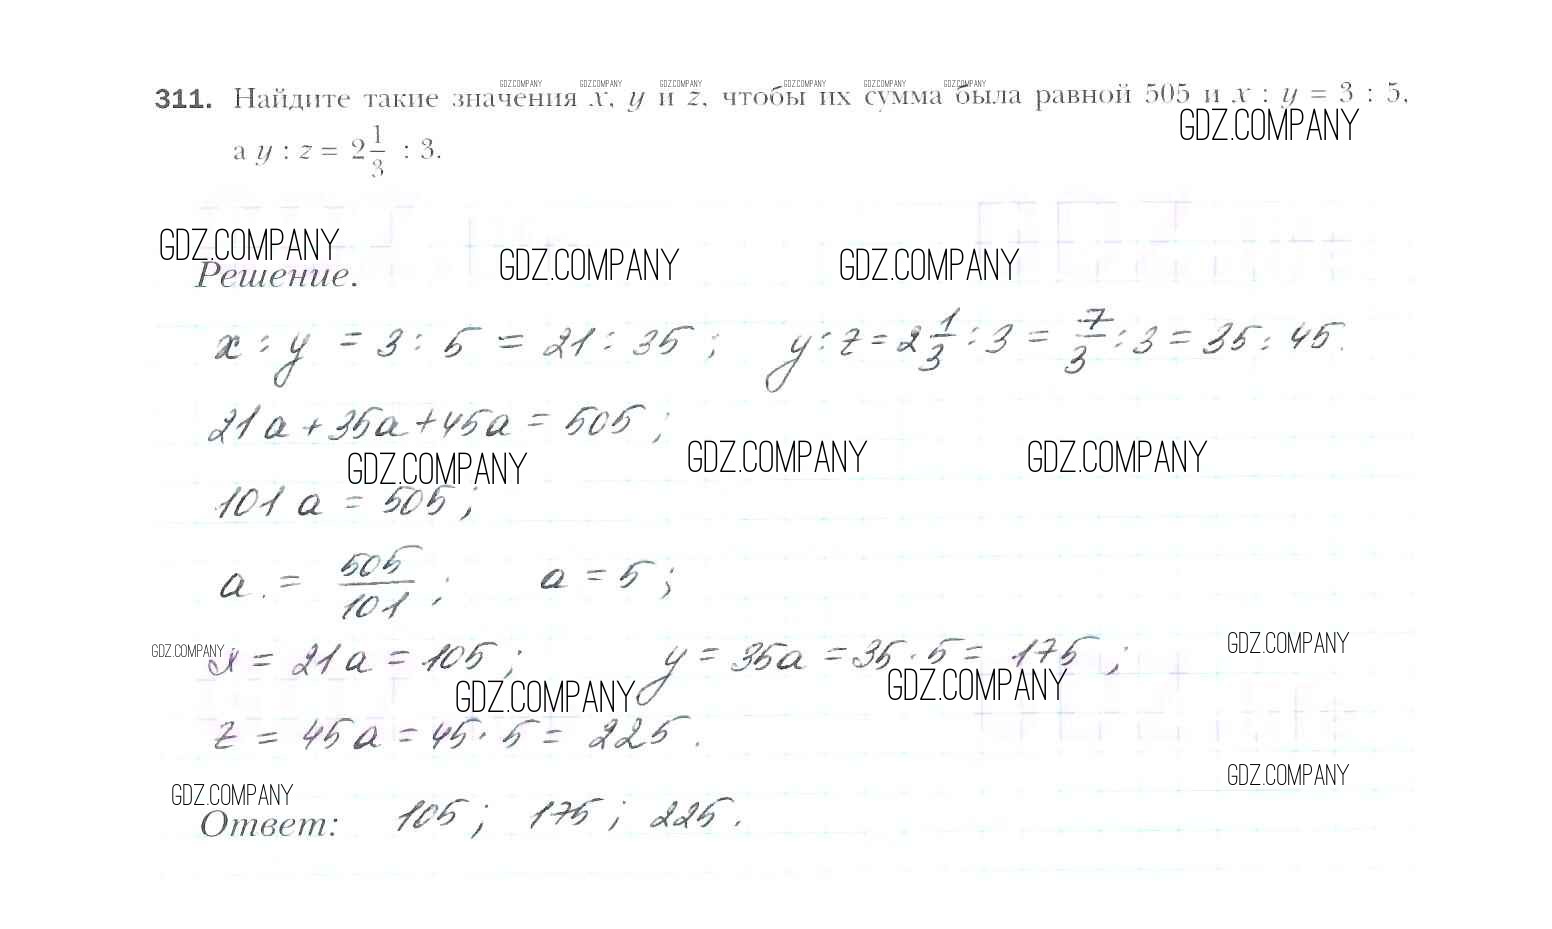 GDZ.COMPANY GDZ.COMPANY GDZ.COMPANY GDZ.COMPANY GDZ.COMPANY GDZ.COMPANY
311. Найдите такие значения x, y и z, чтобы их сумма была равной 505 и x : y = 3 : 5,
GDZ.COMPANY
а y : z = 2 1/3 : 3.
GDZ.COMPANY GDZ.COMPANY GDZ.COMPANY
Решение.
x : y = 3 : 5 = 21 : 35 ; y : z = 2 1/3 : 3 = 7/3 : 3 = 35 : 45.
21a + 35a + 45a = 505 ;
GDZ.COMPANY GDZ.COMPANY GDZ.COMPANY
101 a = 505 ;
a = 505/101 ; a = 5 ;
GDZ.COMPANY GDZ.COMPANY
x = 21a = 105 ; y = 35a = 35 · 5 = 175 ;
GDZ.COMPANY GDZ.COMPANY
z = 45a = 45 · 5 = 225 .
GDZ.COMPANY GDZ.COMPANY
Ответ: 105 ; 175 ; 225 .